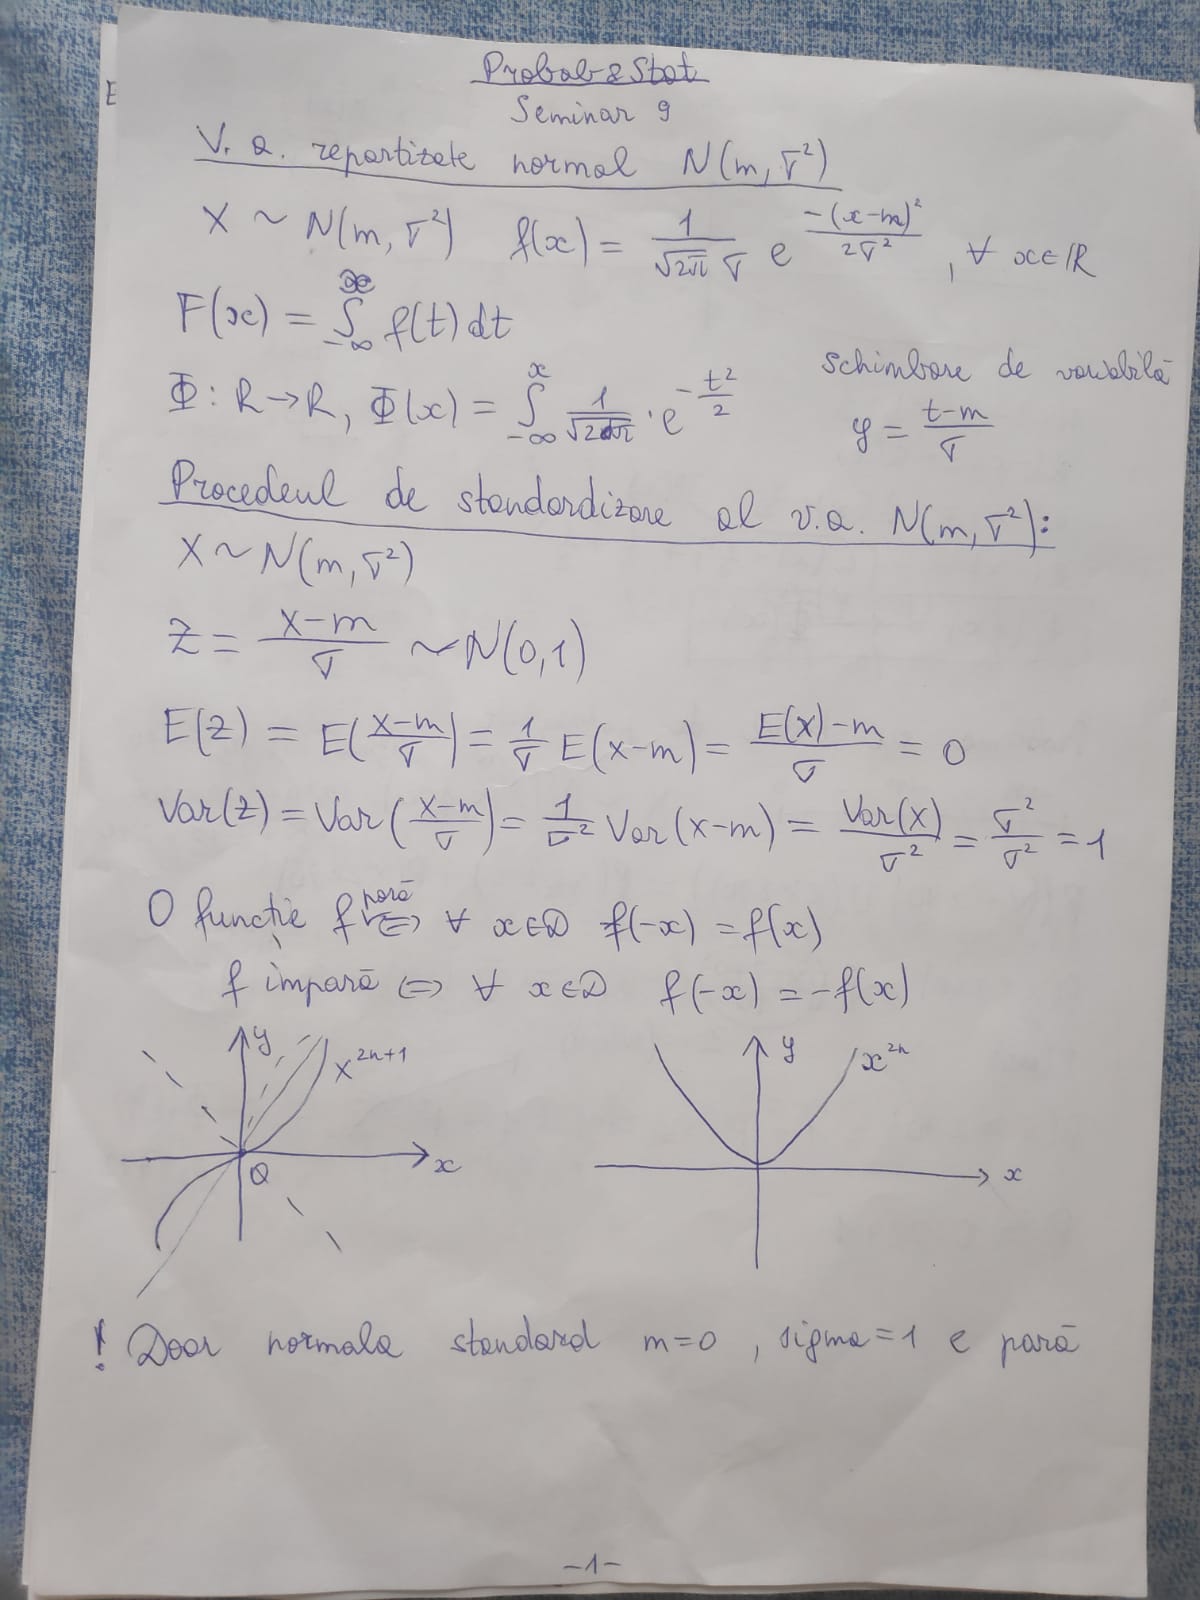 Probab & Stat
Seminar 9
V. a. repartizate normal N(m, σ²)
X ~ N(m, σ²) f(x) = 1/(√2π σ) e^(-(x-m)²/2σ²), ∀ x∈R
F(x) = ∫_{-∞}^{x} f(t) dt
Φ: R→R, Φ(x) = ∫_{-∞}^{x} 1/√2π · e^(-t²/2)
schimbare de variabilă
y = (t-m)/σ
Procedeul de standardizare al v.a. N(m, σ²):
X ~ N(m, σ²)
Z = (X-m)/σ ~ N(0,1)
E(Z) = E((X-m)/σ) = 1/σ E(X-m) = (E(X)-m)/σ = 0
Var(Z) = Var((X-m)/σ) = 1/σ² Var(X-m) = Var(X)/σ² = σ²/σ² = 1
O funcție f pară ⟺ ∀ x∈D f(-x) = f(x)
f impară ⟺ ∀ x∈D f(-x) = -f(x)
y x^(2n+1) x O
y x^(2n) x
! Doar normala standard m=0, sigma=1 e pară
-1-